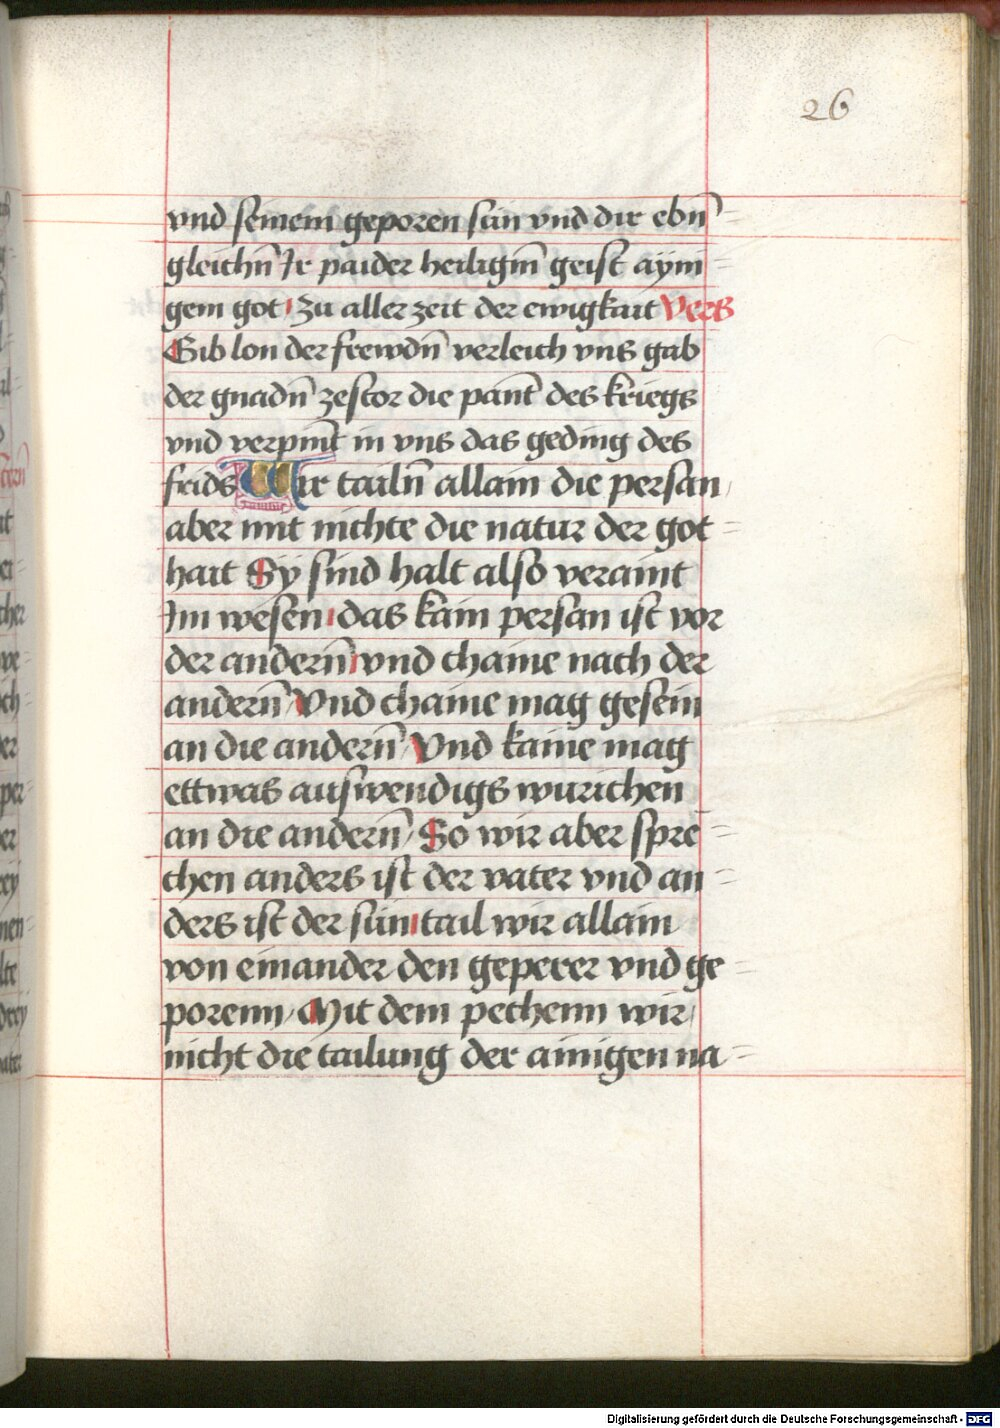 26
vnd seinem geporen sun vnd dir ebn̄
gleichn̄ Ir paider heiligm̄ geist aÿni
gem got / Zu aller zeit der ewigkait Vers
Gib lon der frewdn̄ verleich vns gab
der gnadn̄ zestor die pant̄ des kriegs
vnd verpint̄ in vns das geding des
frids Wir tailn̄ allain die persan
aber mit nichte die natur der got
hait Sÿ sind halt also veraint
Im wesen / das kain persan ist vor
der andern̄ / vnd chaine nach der
andern̄ / Vnd chaine mag gesein
an die andern̄ / Vnd kaine mag
ettwas auswendigs wurichen
an die andern̄ / So wir aber spre
chen anders ist der vater vnd an
ders ist der sun / tail wir allain
von einander den geperer vnd ge
porenn / Mit dem pechenn wir
nicht die tailung der ainigen na
Digitalisierung gefördert durch die Deutsche Forschungsgemeinschaft - DFG